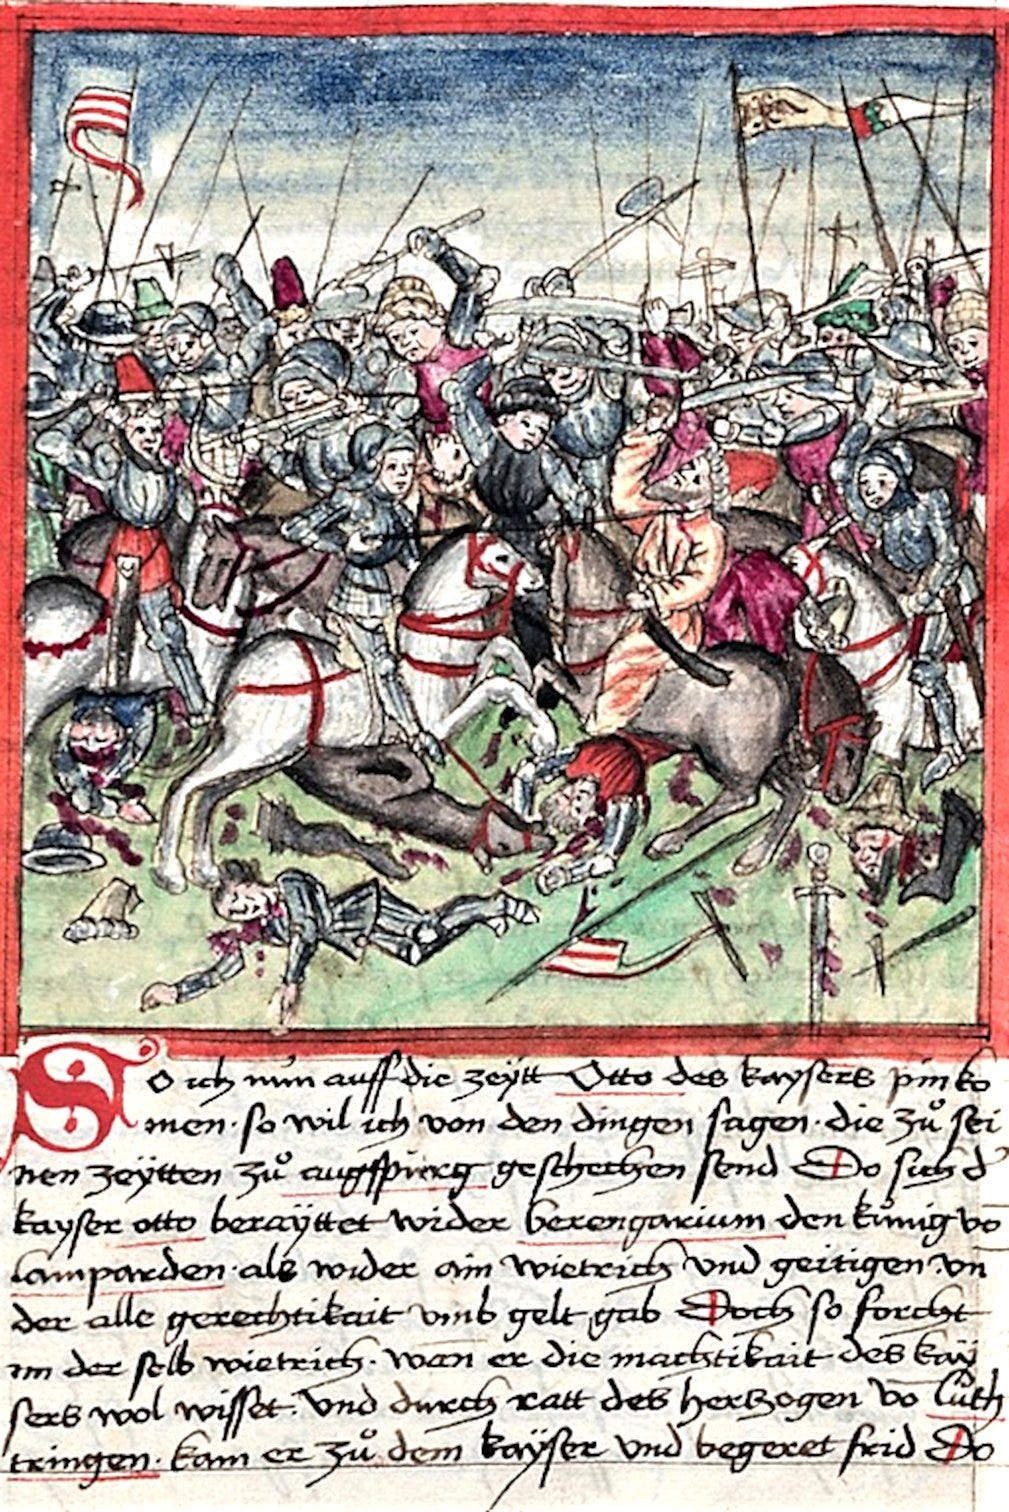 So ich nun auff die zeÿtt Otto des kaysers pin ko
men · so wil ich von den dingen sagen · die zů sei
nen zeÿtten zů augspurg geschechen send Do sich d'
kayser otto beraÿttet wider berengarium den künig vo
lamparden · als wider ain wietrich vnd geitigen · vn
der alle gerechtikait vmb gelt gab Doch so forcht
im der selb wietrich · wan er die machtikait des kaÿ
sers wol wisset · vnd durch ratt des hertzogen vo luth
tringen · kam er zů dem kaÿser vnd begeret frid Do